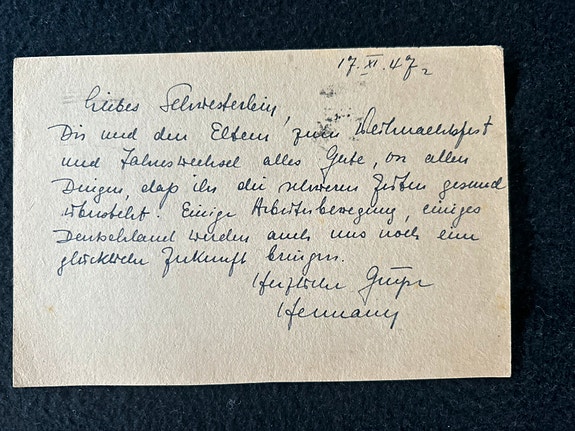 17.XI.47
Liebes Schwesterlein,
Dir und den Eltern zum Weihnachtsfest
und Jahreswechsel alles Gute, vor allen
Dingen, daß ihr die schweren Zeiten gesund
übersteht. Einige Arbeiterbewegung, einiges
Deutschland werden auch uns noch eine
glückliche Zukunft bringen.
Herzliche Grüße
Hermann